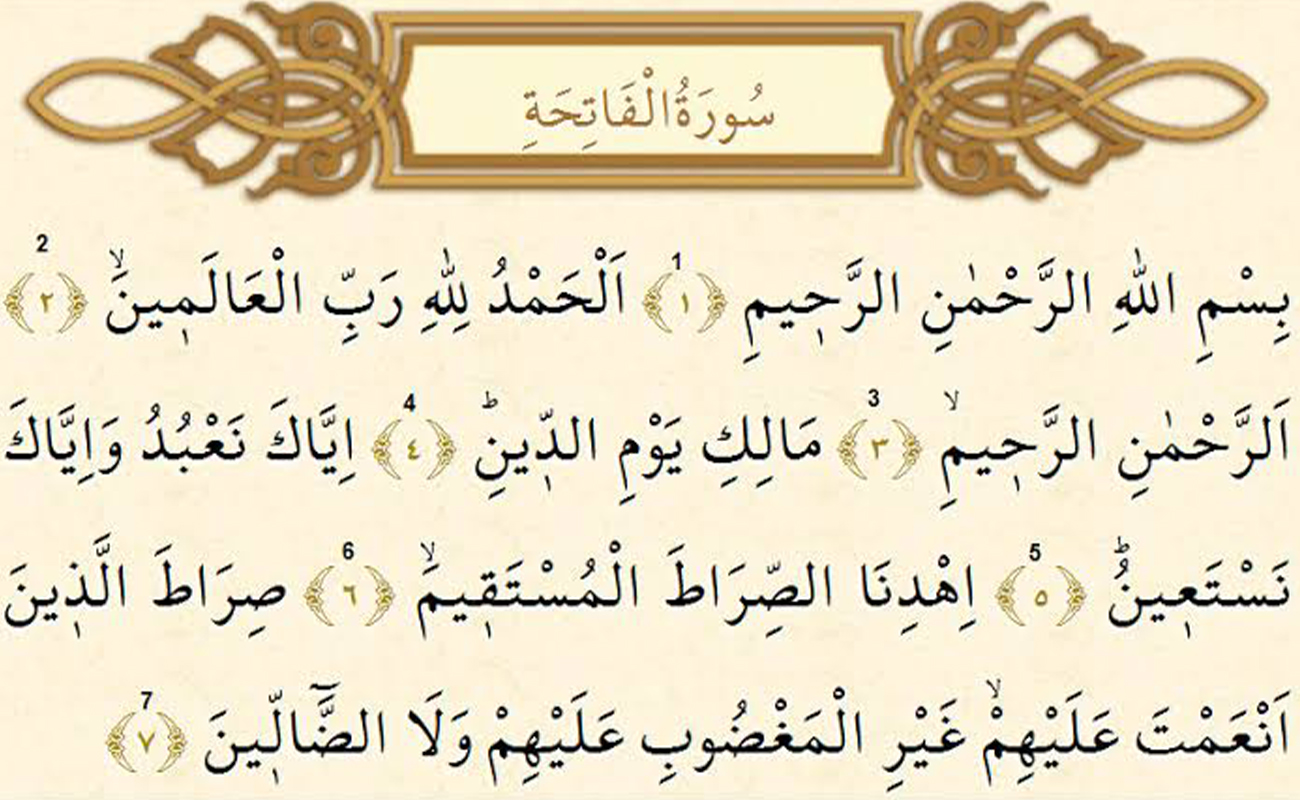 سُورَةُ الْفَاتِحَةِ
بِسْمِ اللهِ الرَّحْمٰنِ الرَّحٖيمِ ﴿١﴾ 1 اَلْحَمْدُ لِلّٰهِ رَبِّ الْعَالَمٖينَۙ ﴿٢﴾ 2
اَلرَّحْمٰنِ الرَّحٖيمِۙ ﴿٣﴾ 3 مَالِكِ يَوْمِ الدّٖينِؕ ﴿٤﴾ 4 اِيَّاكَ نَعْبُدُ وَاِيَّاكَ
نَسْتَعٖينُؕ ﴿٥﴾ 5 اِهْدِنَا الصِّرَاطَ الْمُسْتَقٖيمَۙ ﴿٦﴾ 6 صِرَاطَ الَّذٖينَ
اَنْعَمْتَ عَلَيْهِمْۙ غَيْرِ الْمَغْضُوبِ عَلَيْهِمْ وَلَا الضَّٓالّٖينَ ﴿٧﴾ 7